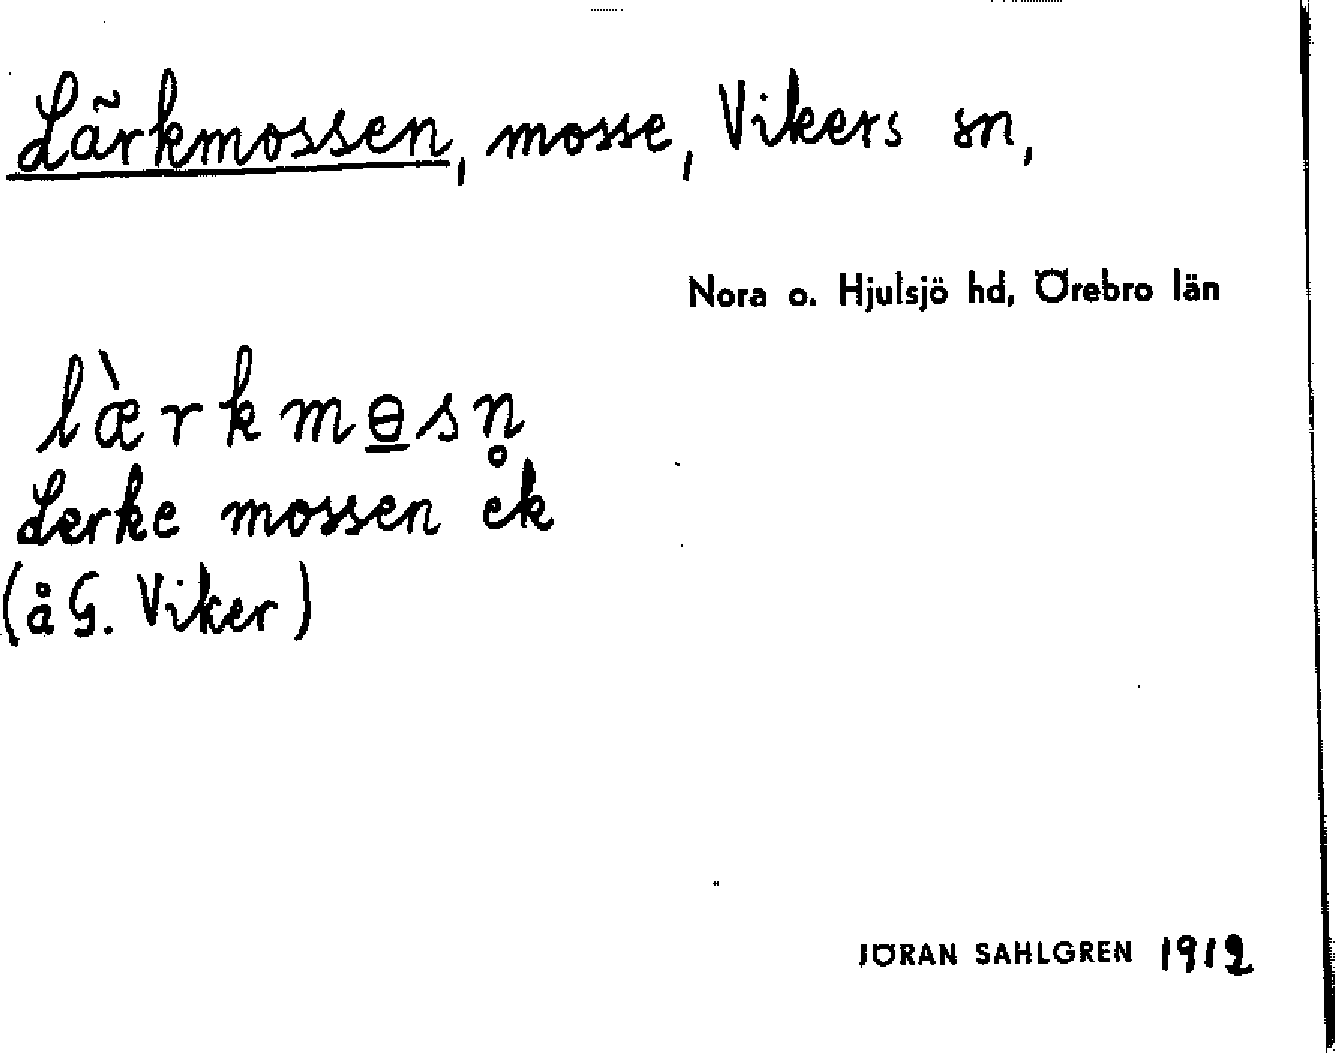 Lärkmossen, mosse, Vikers sn,
Nora o. Hjulsjö hd, Örebro län
læ̀rkmɵ̲sn̥
Lerke mossen ek
(å G. Viker)
JÖRAN SAHLGREN 1912